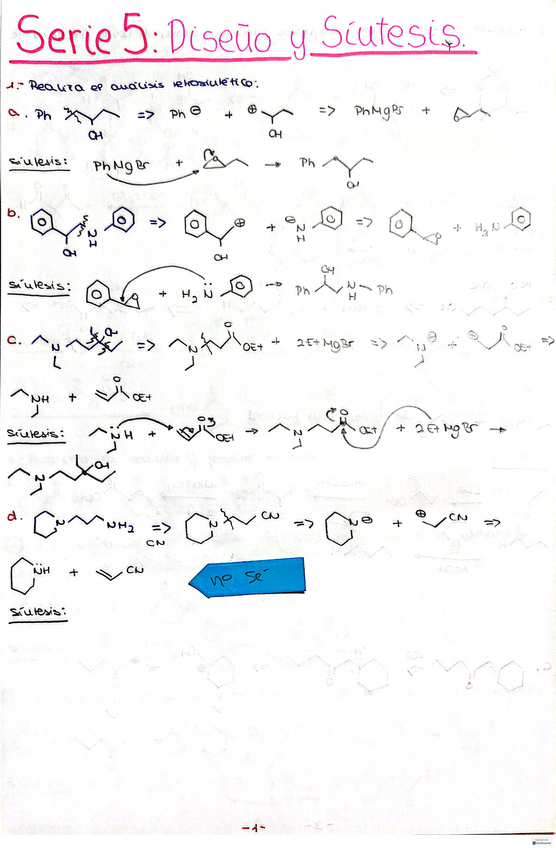 Serie 5: Diseño y Síntesis.
1.- Realiza el análisis retrosintético:
a. Ph OH => Ph ⊖ + ⊕ OH => PhMgBr + O
Síntesis: PhMgBr + O → Ph OH
b. OH N H => ⊕ OH + ⊖ N H => O + H2N
Síntesis: O + H2N → Ph OH N H Ph
c. N OH => N O OEt + 2EtMgBr => N ⊖ + ⊕ O OEt =>
NH + O OEt
Síntesis: NH + O OEt → N O OEt + 2EtMgBr →
N OH
d. N NH2 => N CN => N ⊖ + ⊕ CN =>
CN
NH + CN no sé
Síntesis:
-1-